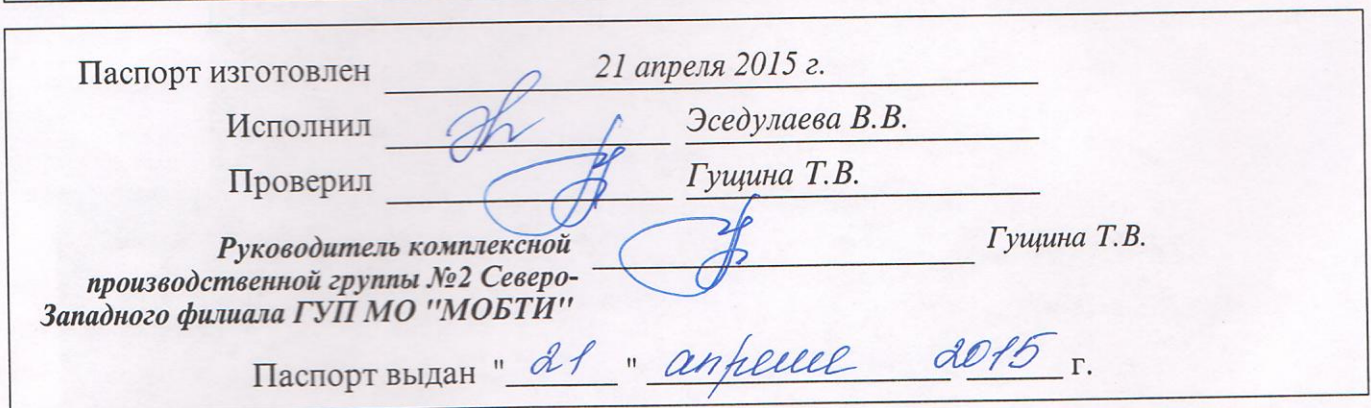 Паспорт изготовлен 21 апреля 2015 г.
Исполнил Эседулаева В.В.
Проверил Гущина Т.В.
Руководитель комплексной
производственной группы №2 Северо-
Западного филиала ГУП МО "МОБТИ" Гущина Т.В.
Паспорт выдан " 21 " апреля 2015 г.